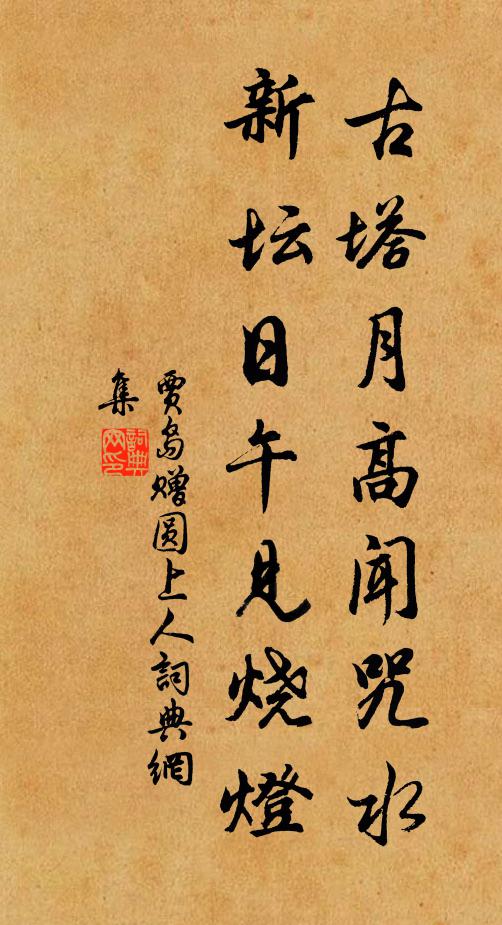 古塔月高闻咒水
新坛日午见烧燈
贾岛赠圆上人詞典網
集
詞典
网印